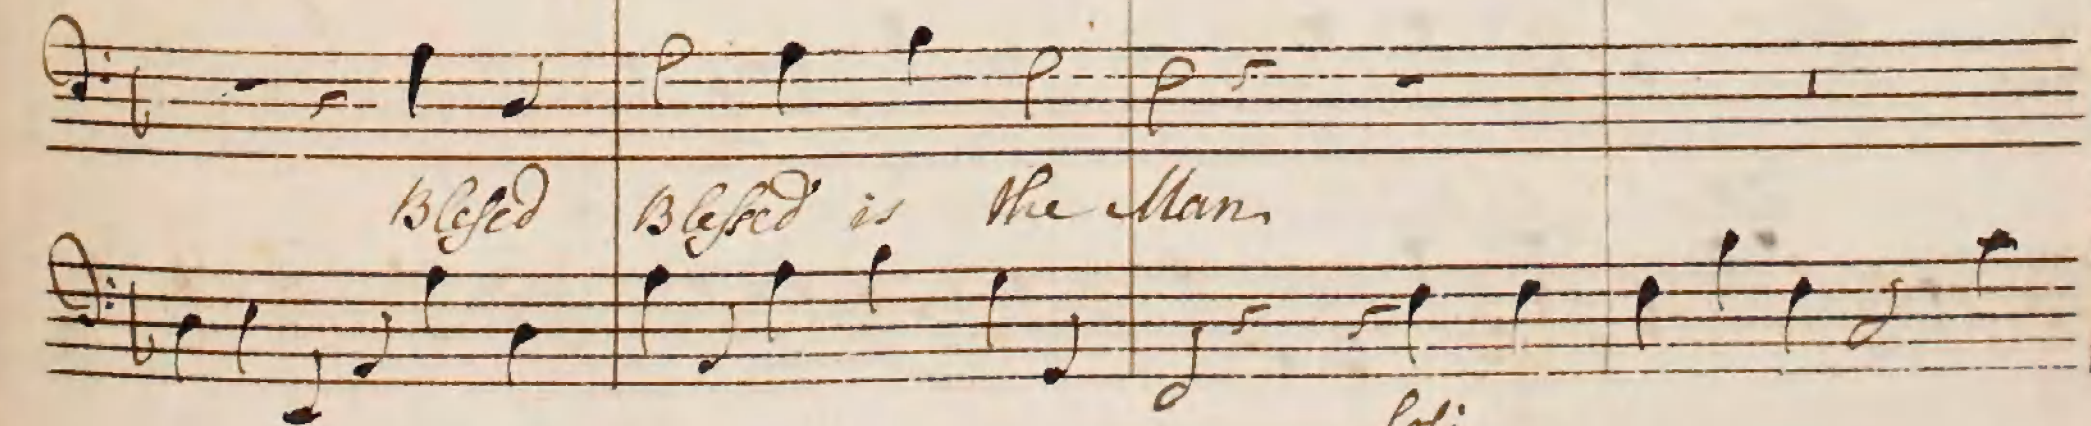 Blessed Blessed is the Man